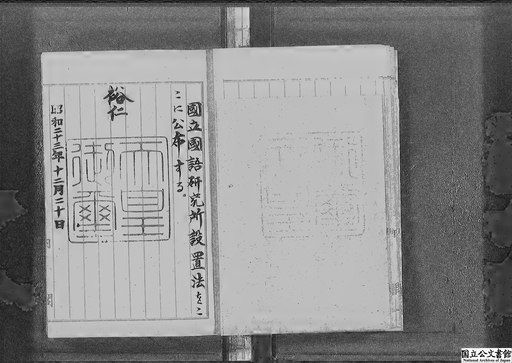 國立國語研究所設置法をこ
こに公布する。
裕仁
天皇
御璽
昭和二十三年十二月二十日
国立公文書館
National Archives of Japan